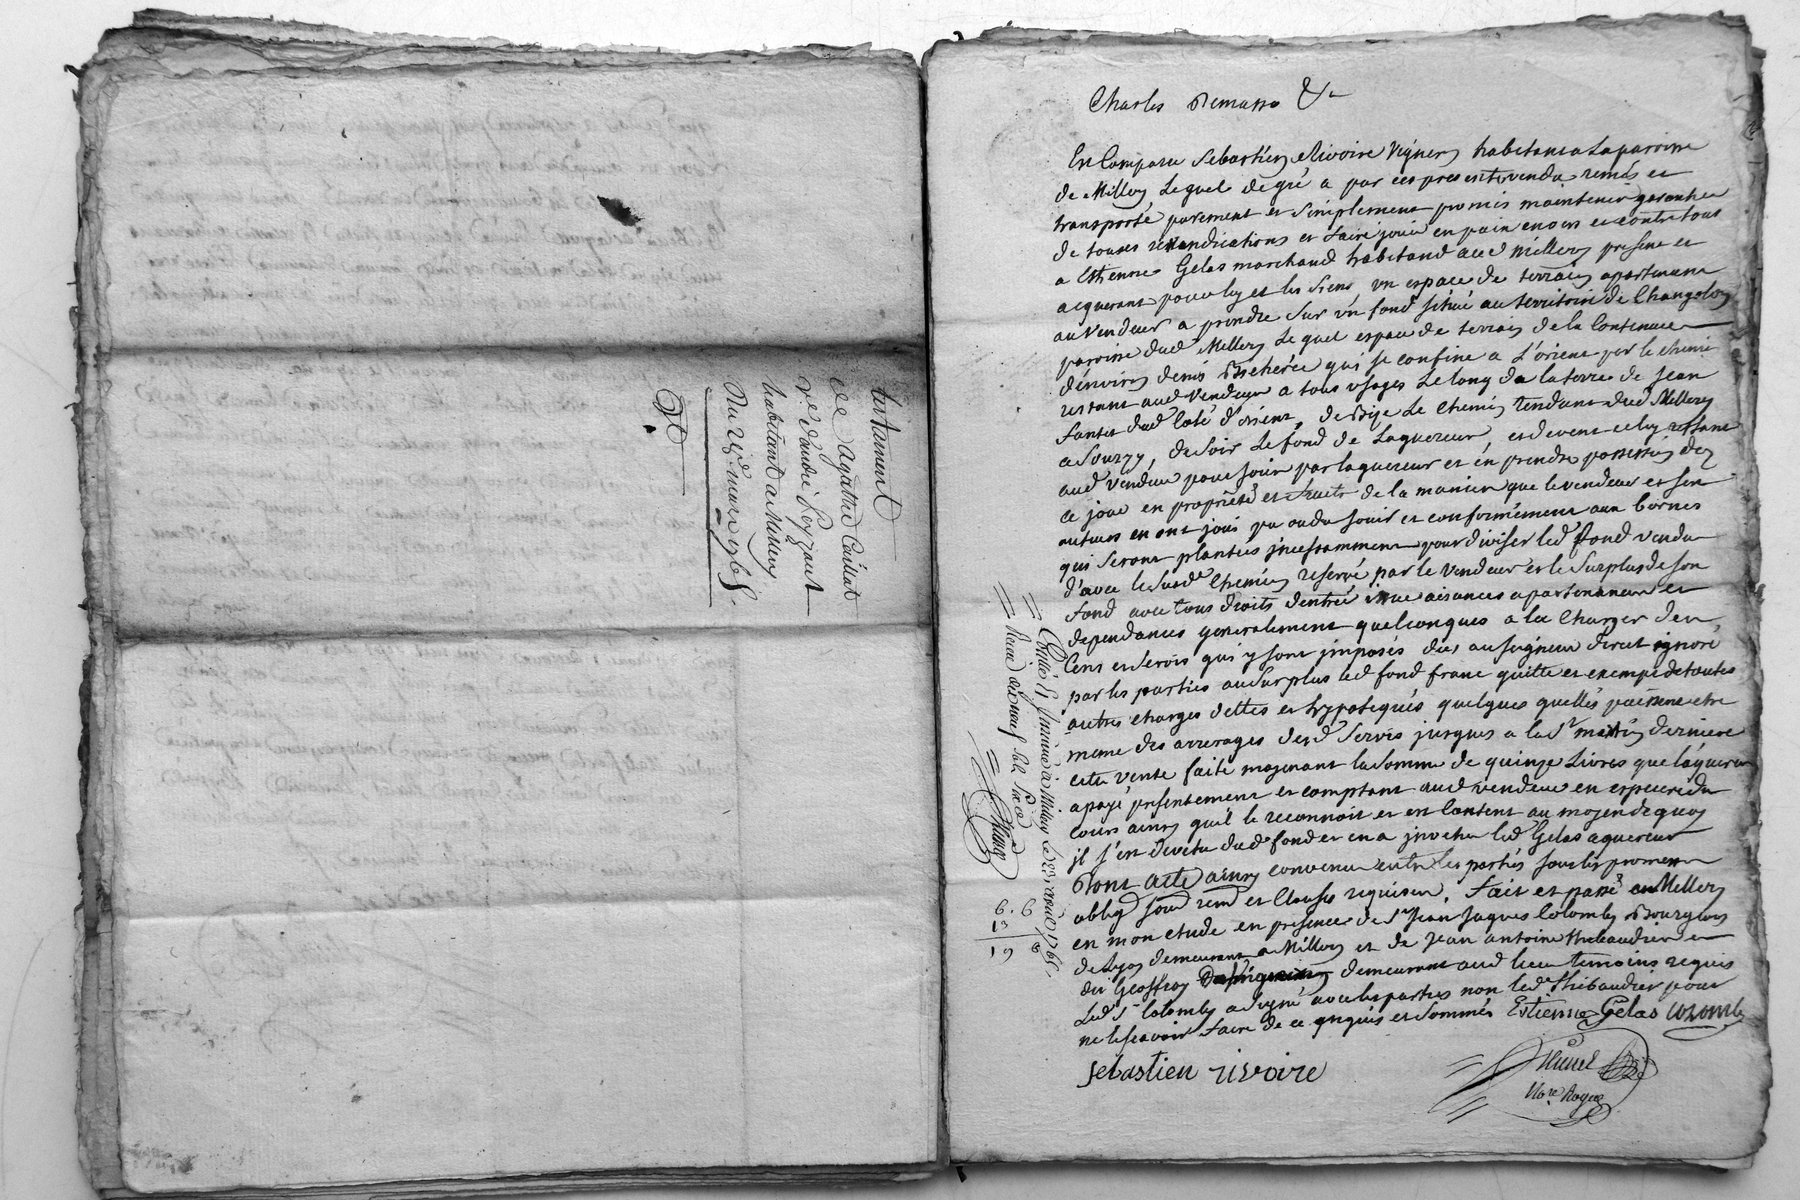 testament
de agathe Caillat
ve d'andré
habitant a Millery
Du 1765.
Charles &a
En Comparu Sebastien Rivoire Vigneron habitant a La paroisse
de Millery Lequel de gré a par ces presentes vendu remis et
transporté purement et simplement promis maintenir garantir
de toutes revandications et faire jouir en paix envers et contre tous
a Estienne Gelas marchand habitand aud Millery present et
aquerant pour luy et les siens un espace de terrain apartenant
au Vendeur a prendre sur un fond situé au territoire de
paroisse dud Millery Le quel espace de terrain de la Contenue
d'environ demi Bicherée qui se confine a L'orient par le chemin
restant aud Vendeur a tous usages Le long de la terre de Jean
dud Coté d'orient, de Bize Le Chemin tendant dud Millery
a Sourzy, de soir Le fond de Laquereur, et de vent celuy restant
aud Vendeur pour jouir par laquereur et en prendre possession dez
ce jour en proprieté et fruits de la maniere que le vendeur et ses
auteurs en ont joui pu ou du jouir et conformement aux bornes
qui seront plantées incessamment pour diviser led fond vendu
d'avec le susd Chemin reservé par le vendeur et le surplus de son
fond avec tous droits d'entrée issue aisances apartenances et
dependances generalement quelconques a la Charge des
Cens et servis qui y sont imposés dus au seigneur direct ignoré
par les parties au surplus led fond franc quitte et exempt de toutes
autres charges dettes et hypoteques quelques quelles puissent etre
meme des arrerages desd servis jusques a la St martin derniere
cette vente faite moyenant la somme de quinze Livres que laquereur
a payé presentement et comptant aud vendeur en especes du
cours ainsy quil le reconnoit et en Content au moyen de quoy
il s'en devetu dud fond et en a investu led Gelas aquereur
Dont acte ainsy convenu entre les parties sous les promesses
oblig soum renon et Clauses requises. Fait et passé a Millery
en mon etude en presence de Sr Jean Jaques Colomby Bourgeois
de Lyon demeurant a Millery et de Jean antoine Thibaudier
dit Geoffray demeurant aud lieu temoins requis
Led Sr Colomby a signé avec les parties non led Thibaudier pour
ne le sçavoir faire de ce enquis et sommés Estienne Gelas Colomby
sebastien rivoire
Nore Royal
Controllé et Insinué à Millery le 23 aout 1765.
Recu dix neuf sols six d
6. 6
13
19 6